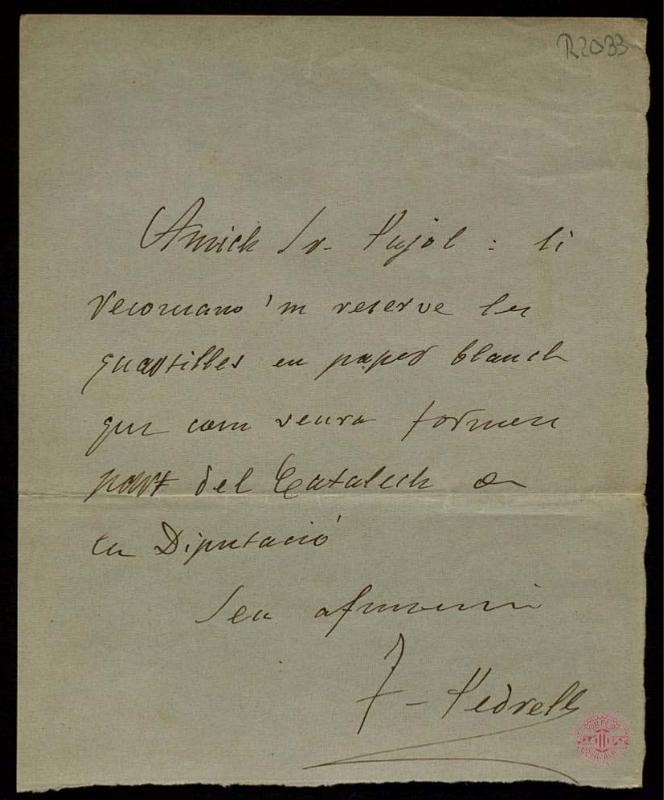 R2033
Amich Sr. Pujol: li
recomano 'm reserve les
quartilles en paper blanch
que com veura formen
part del Catalech de
la Diputació
Seu afm
F. Pedrell